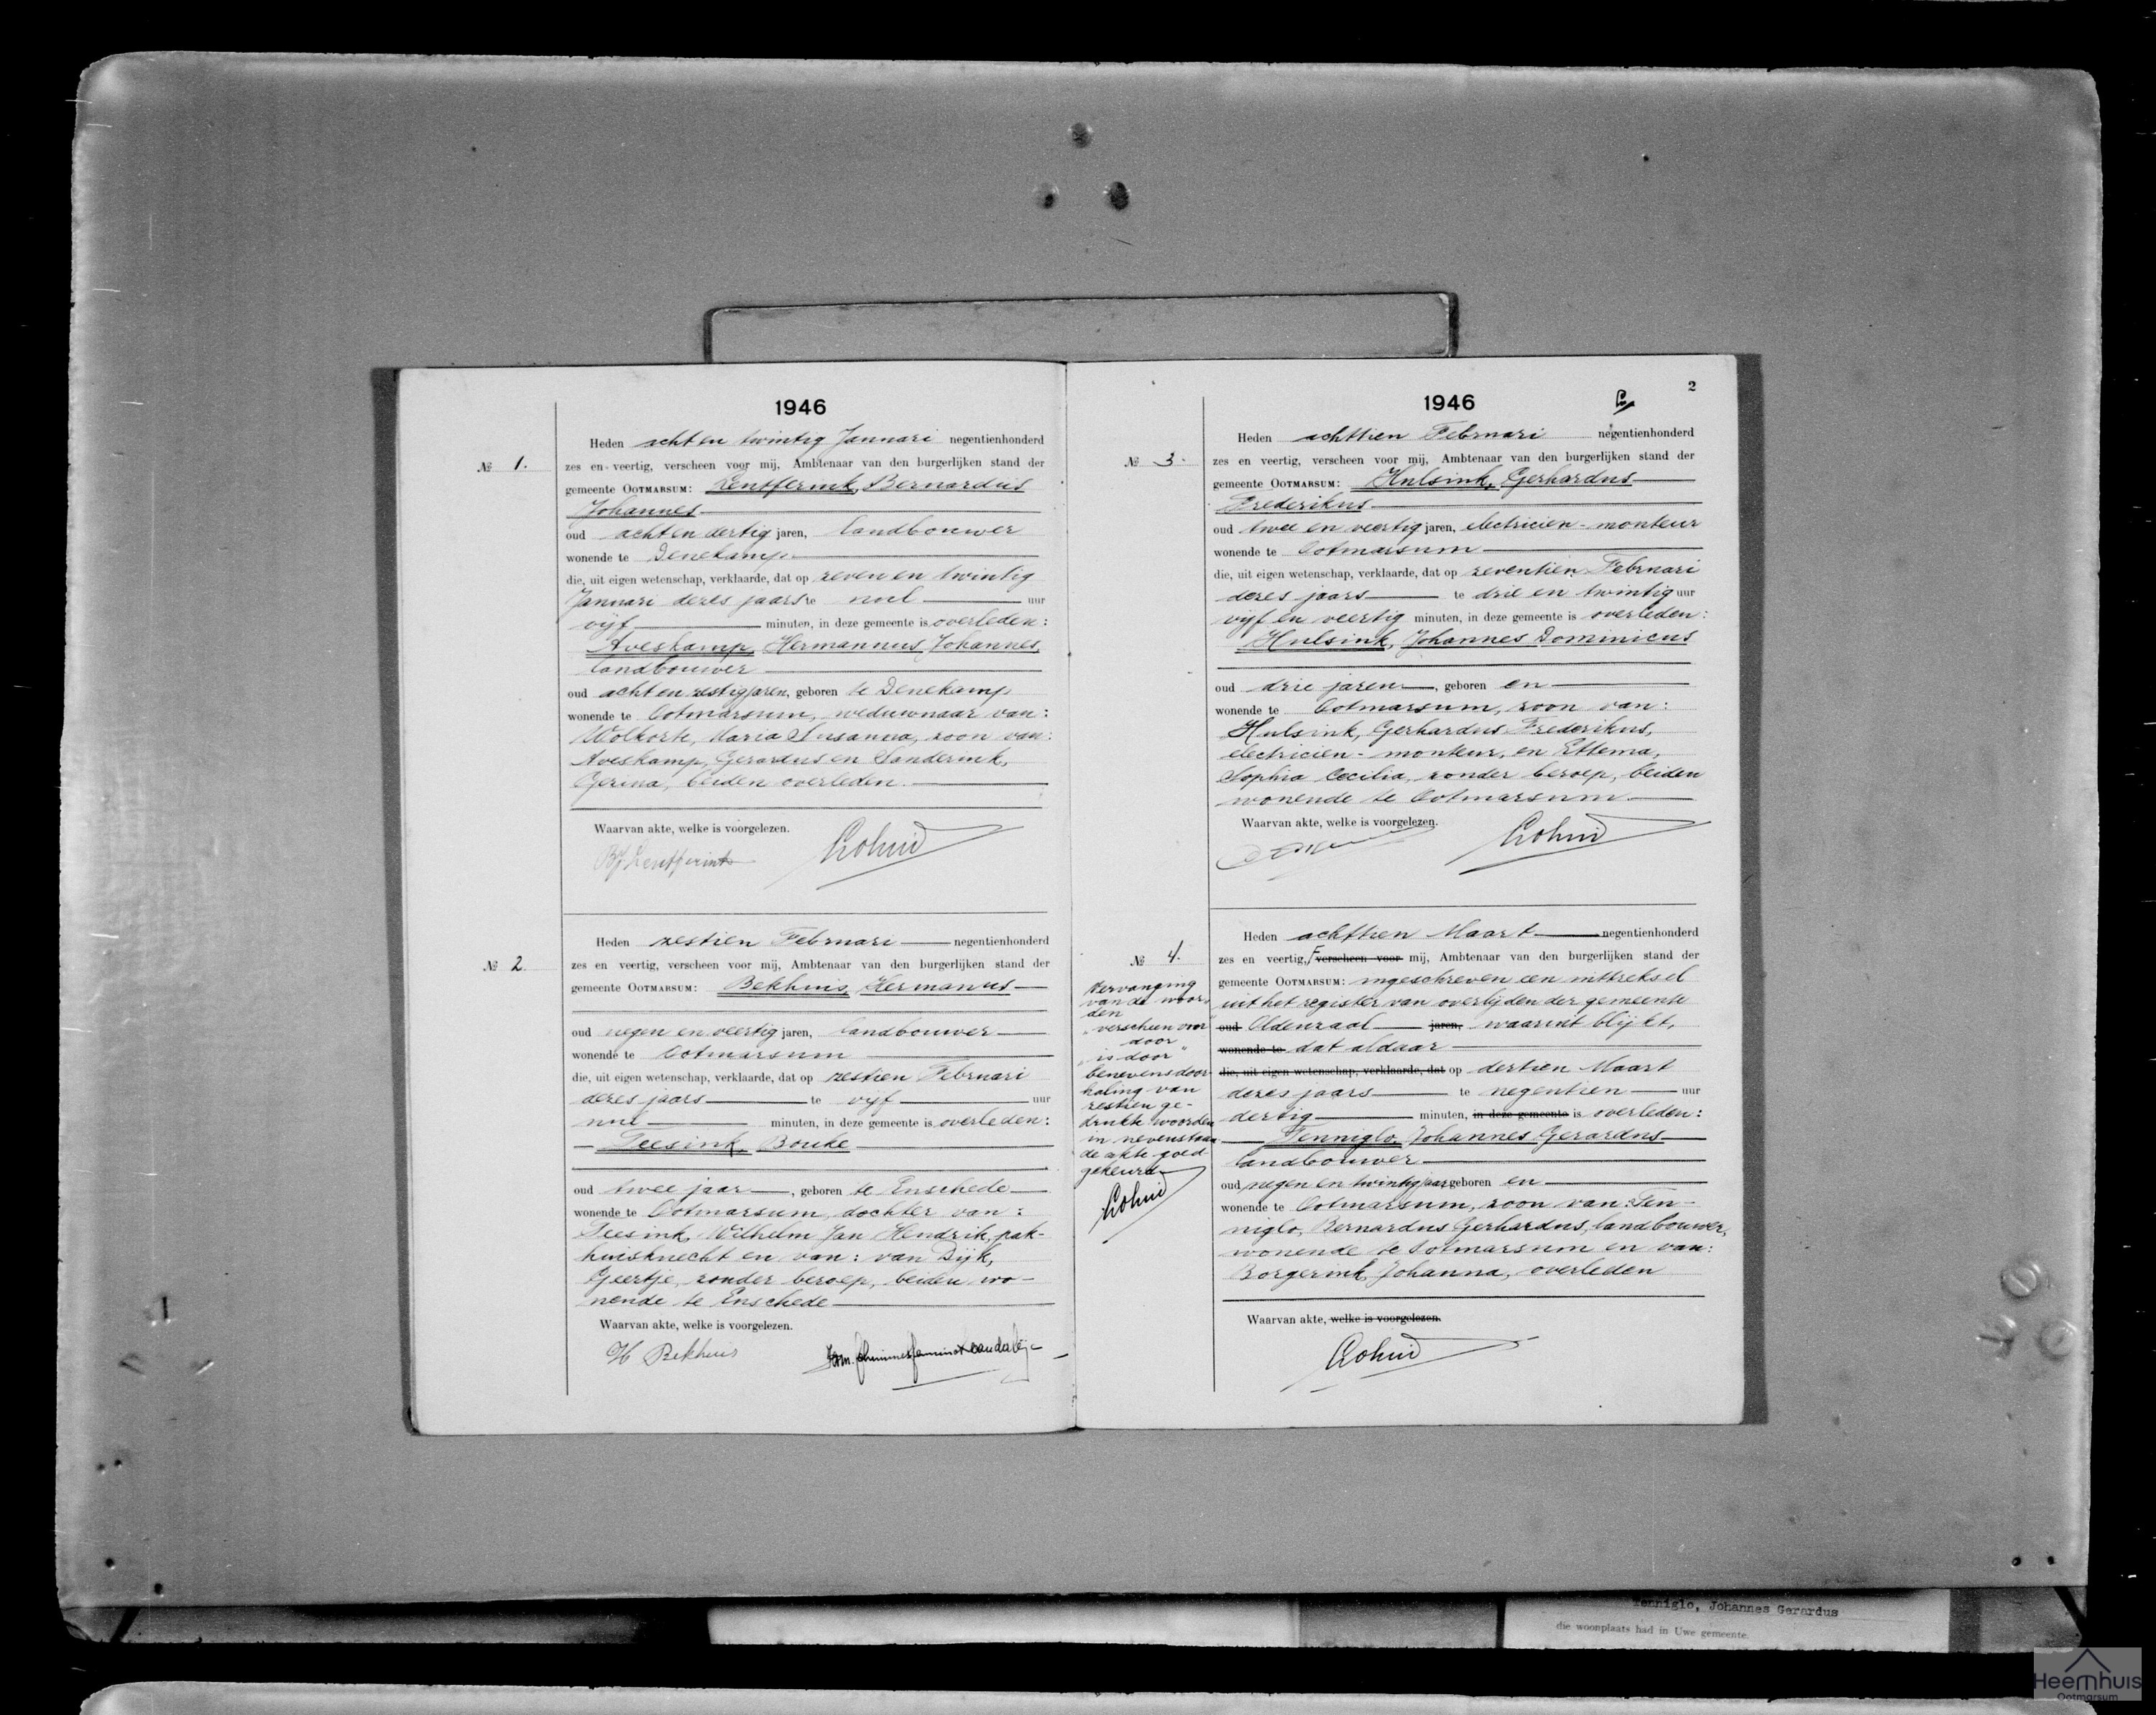 1946
Nº 1.
Heden acht en twintig Januari negentienhonderd
zes en veertig, verscheen voor mij, Ambtenaar van den burgerlijken stand der
gemeente OOTMARSUM: Lentferink, Bernardus
Johannes
oud acht en dertig jaren, landbouwer
wonende te Denekamp
die, uit eigen wetenschap, verklaarde, dat op zeven en twintig
Januari dezes jaars te nul uur
vijf minuten, in deze gemeente is overleden:
Aveskamp, Hermannus Johannes,
landbouwer
oud acht en zestig jaren, geboren te Denekamp
wonende te Ootmarsum, weduwnaar van:
Wolkorte, Maria Susanna, zoon van:
Aveskamp, Gerardus en Sanderink,
Gerina, beiden overleden.
Waarvan akte, welke is voorgelezen.
BJ Lentferink
Nº 2.
Heden zestien Februari negentienhonderd
zes en veertig, verscheen voor mij, Ambtenaar van den burgerlijken stand der
gemeente OOTMARSUM: Bekhuis, Hermanus
oud negen en veertig jaren, landbouwer
wonende te Ootmarsum
die, uit eigen wetenschap, verklaarde, dat op zestien Februari
dezes jaars te vijf uur
nul minuten, in deze gemeente is overleden:
Teesink, Bouke
oud twee jaar, geboren te Enschede
wonende te Ootmarsum, dochter van:
Teesink, Wilhelm Jan Hendrik, pak-
huisknecht en van: van Dijk,
Geertje, zonder beroep, beiden wo-
nende te Enschede
Waarvan akte, welke is voorgelezen.
H Bekhuis
2
1946
Nº 3.
Heden achttien Februari negentienhonderd
zes en veertig, verscheen voor mij, Ambtenaar van den burgerlijken stand der
gemeente OOTMARSUM: Hulsink, Gerhardus
Frederikus
oud twee en veertig jaren, electricien-monteur
wonende te Ootmarsum
die, uit eigen wetenschap, verklaarde, dat op zeventien Februari
dezes jaars te drie en twintig uur
vijf en veertig minuten, in deze gemeente is overleden:
Hulsink, Johannes Dominicus
oud drie jaren, geboren en
wonende te Ootmarsum, zoon van:
Hulsink, Gerhardus Frederikus,
electricien-monteur, en Ettema,
Sophia Cecilia, zonder beroep, beiden
wonende te Ootmarsum.
Waarvan akte, welke is voorgelezen.
Nº 4.
Vervanging
van de woor-
den
"verscheen voor"
door
"is door"
benevens door-
haling van
zestien ge-
drukte woorden
in nevenstaan-
de akte goed-
gekeurd
Heden achttien Maart negentienhonderd
zes en veertig, verscheen voor mij, Ambtenaar van den burgerlijken stand der
gemeente OOTMARSUM: ingeschreven een uittreksel
uit het register van overlijden der gemeente
oud Oldenzaal jaren, waaruit blijkt,
wonende te dat aldaar
die, uit eigen wetenschap, verklaarde, dat op dertien Maart
dezes jaars te negentien uur
dertig minuten, in deze gemeente is overleden:
Tenniglo, Johannes Gerardus
landbouwer
oud negen en twintig jaar geboren en
wonende te Ootmarsum, zoon van: Ten-
niglo, Bernardus Gerhardus, landbouwer,
wonende te Ootmarsum en van:
Borgerink, Johanna, overleden
Waarvan akte, welke is voorgelezen.
Tenniglo, Johannes Gerardus
die woonplaats had in Uwe gemeente.
Heemhuis
Ootmarsum